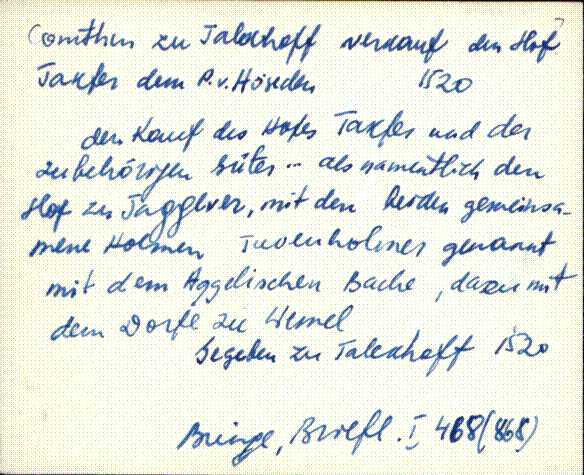 Comthur zu Talckhoff verkauf den Hof
Taxfer dem P. v. Hörden 1520
den Kauf des Hofes Taxfer und der
zubehörigen Güter .. als namentlich den
Hof zu Jaggever, mit den beiden gemeinsa-
mene Holmen Tuvenholmes genannt
mit dem Aggelischen Bache, dazu mit
dem Dorfe zu Wemel
Gegeben zu Talckhoff 1520
Bruinge, Briefl. I, 468 (868)